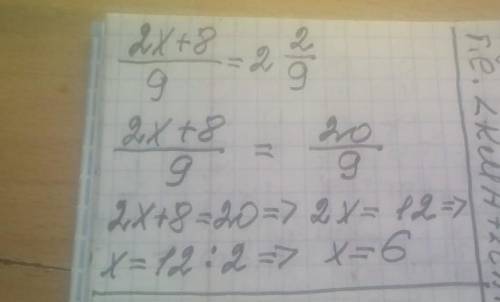 (2x+8)/9 = 2 2/9
(2x+8)/9 = 20/9
2x+8=20=> 2x= 12=>
x=12:2=> x=6